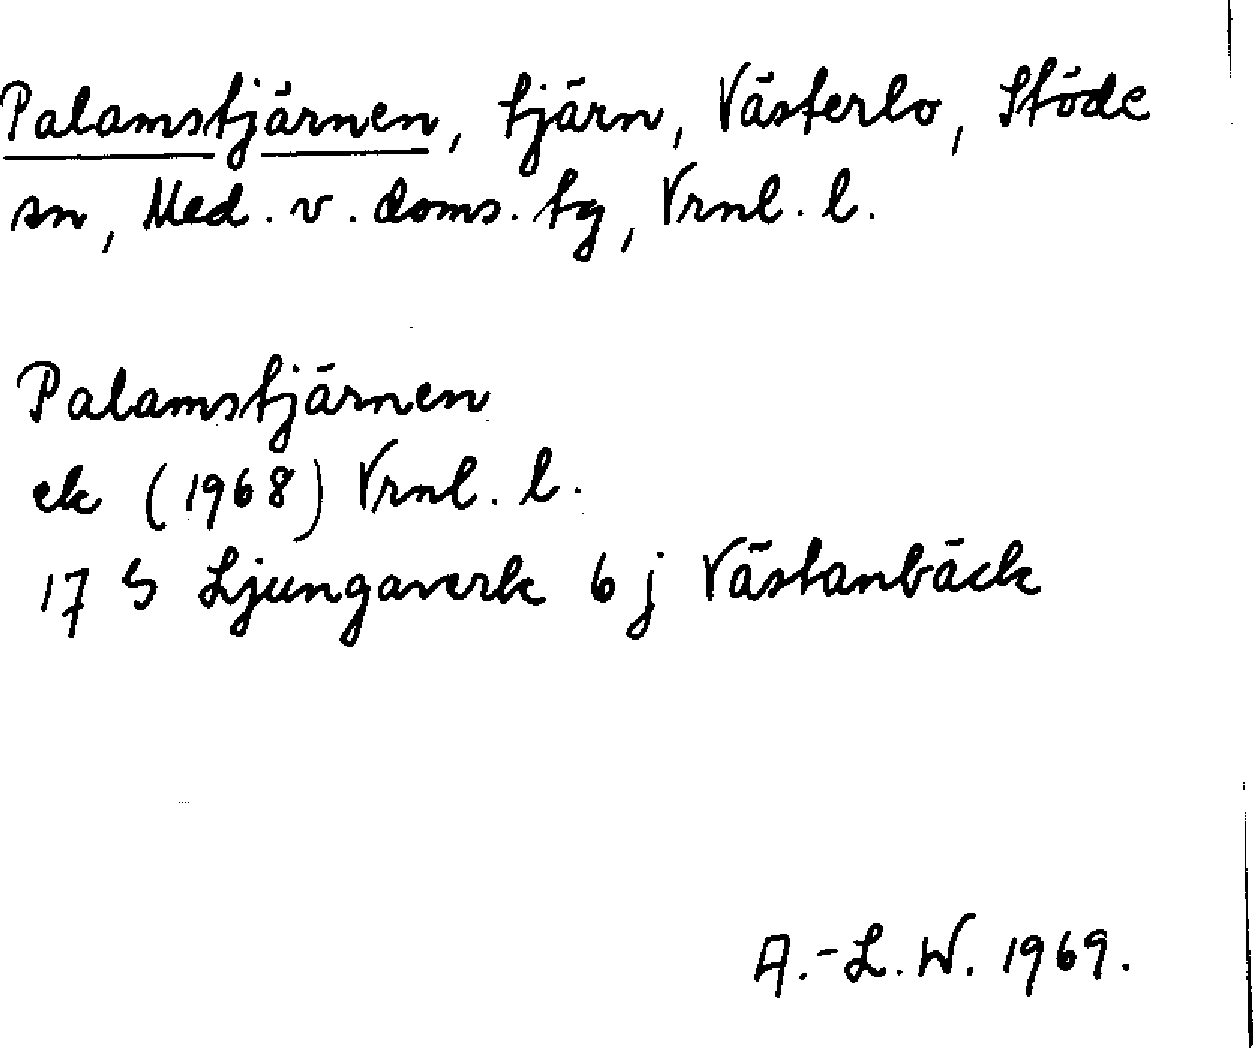 Palamstjärnen, tjärn, Västerlo, Stöde
sn, Med. v. doms. tg, Vrnl. l.
Palamstjärnen
ek (1968) Vrnl. l.
17 S Ljungaverk 6 j Västanbäck
A.-L. W. 1969.